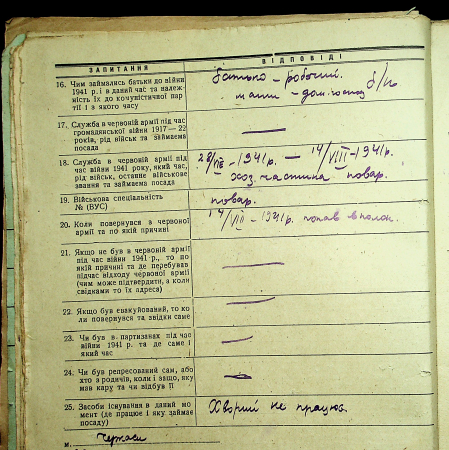 ЗАПИТАННЯ
ВІДПОВІДІ
16. Чим займались батьки до війни
1941 р. і в даний час та належ-
ність їх до комуністичної пар-
тії і з якого часу
батько – робочий.
мати – дом.господ б/п
17. Служба в червоній армії під час
громадянської війни 1917—22
років, рід військ та займаєма
посада
18. Служба в червоній армії під
час війни 1941 року, який час,
рід військ, останнє військове
звання та займаєма посада
– 1941р. – 14/VIII–1941р.
хоз. частина повар.
19. Військова спеціальність
№ (ВУС)
повар.
20. Коли повернувся з червоної
армії та по якій причині
14/VIII – 1941р. попав в полон.
21. Якщо не був в червоній армії
під час війни 1941 р., то по
якій причині та де перебував
підчас відходу червоної армії
(чим може підтвердити, а коли
свідками то їх адреса)
22. Якщо був евакуйований, то ко-
ли повернувся та звідки саме
23. Чи був в партизанах під час
війни 1941 р. та де саме і
який час
24. Чи був репресований сам, або
хто з родичів, коли і защо, яку
мав кару та чи відбув її
25. Засоби існування в даний мо-
мент (де працює і яку займає
посаду)
Хворий не працює.
м. Черкаси